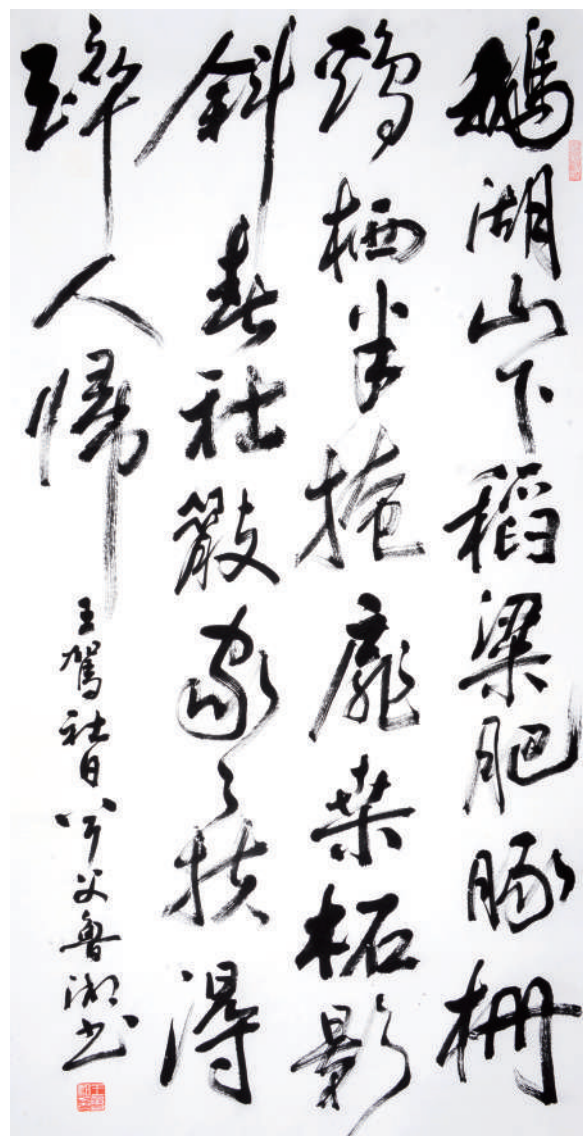 鵝湖山下稻梁肥豚柵
鷄栖半掩扉桑柘影
斜春社散家々扶得
醉人歸
王駕社日 父魯湘書